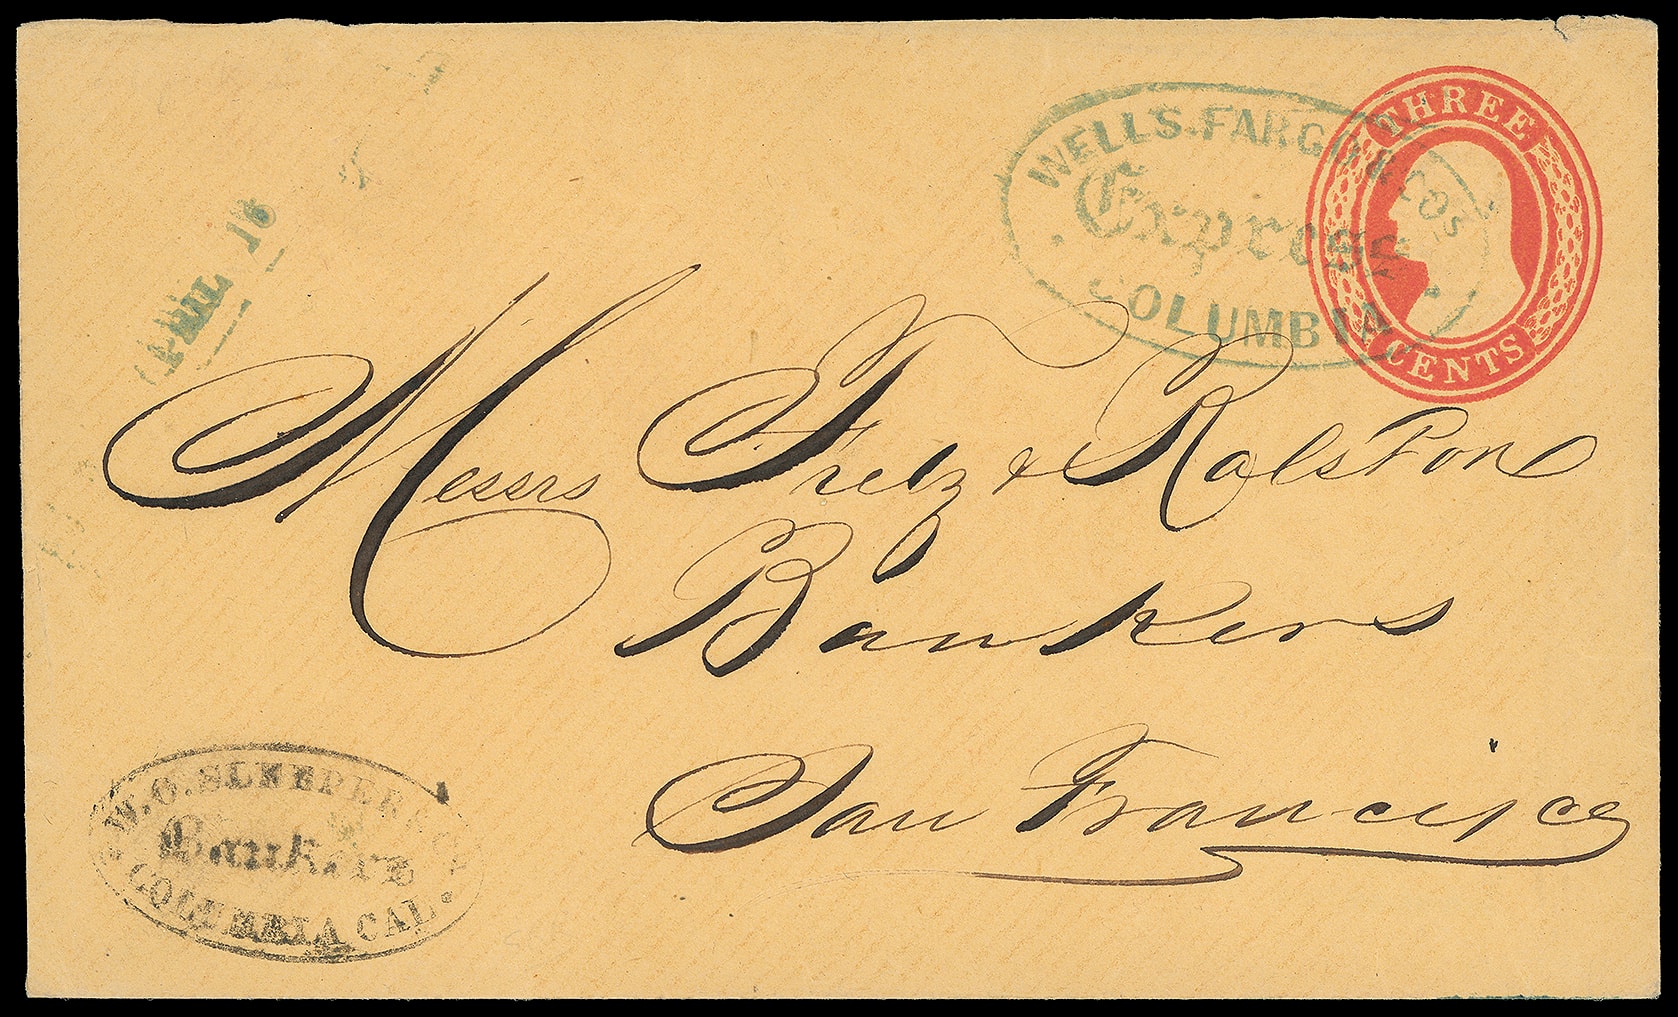 THREE
CENTS
WELLS. FARGO & COS
Express
COLUMBIA
APRIL 16
Messrs Fretz & Ralston
Bankers
San Francisco
W. O. SLEEPER & CO
Bankers
COLUMBIA CAL.